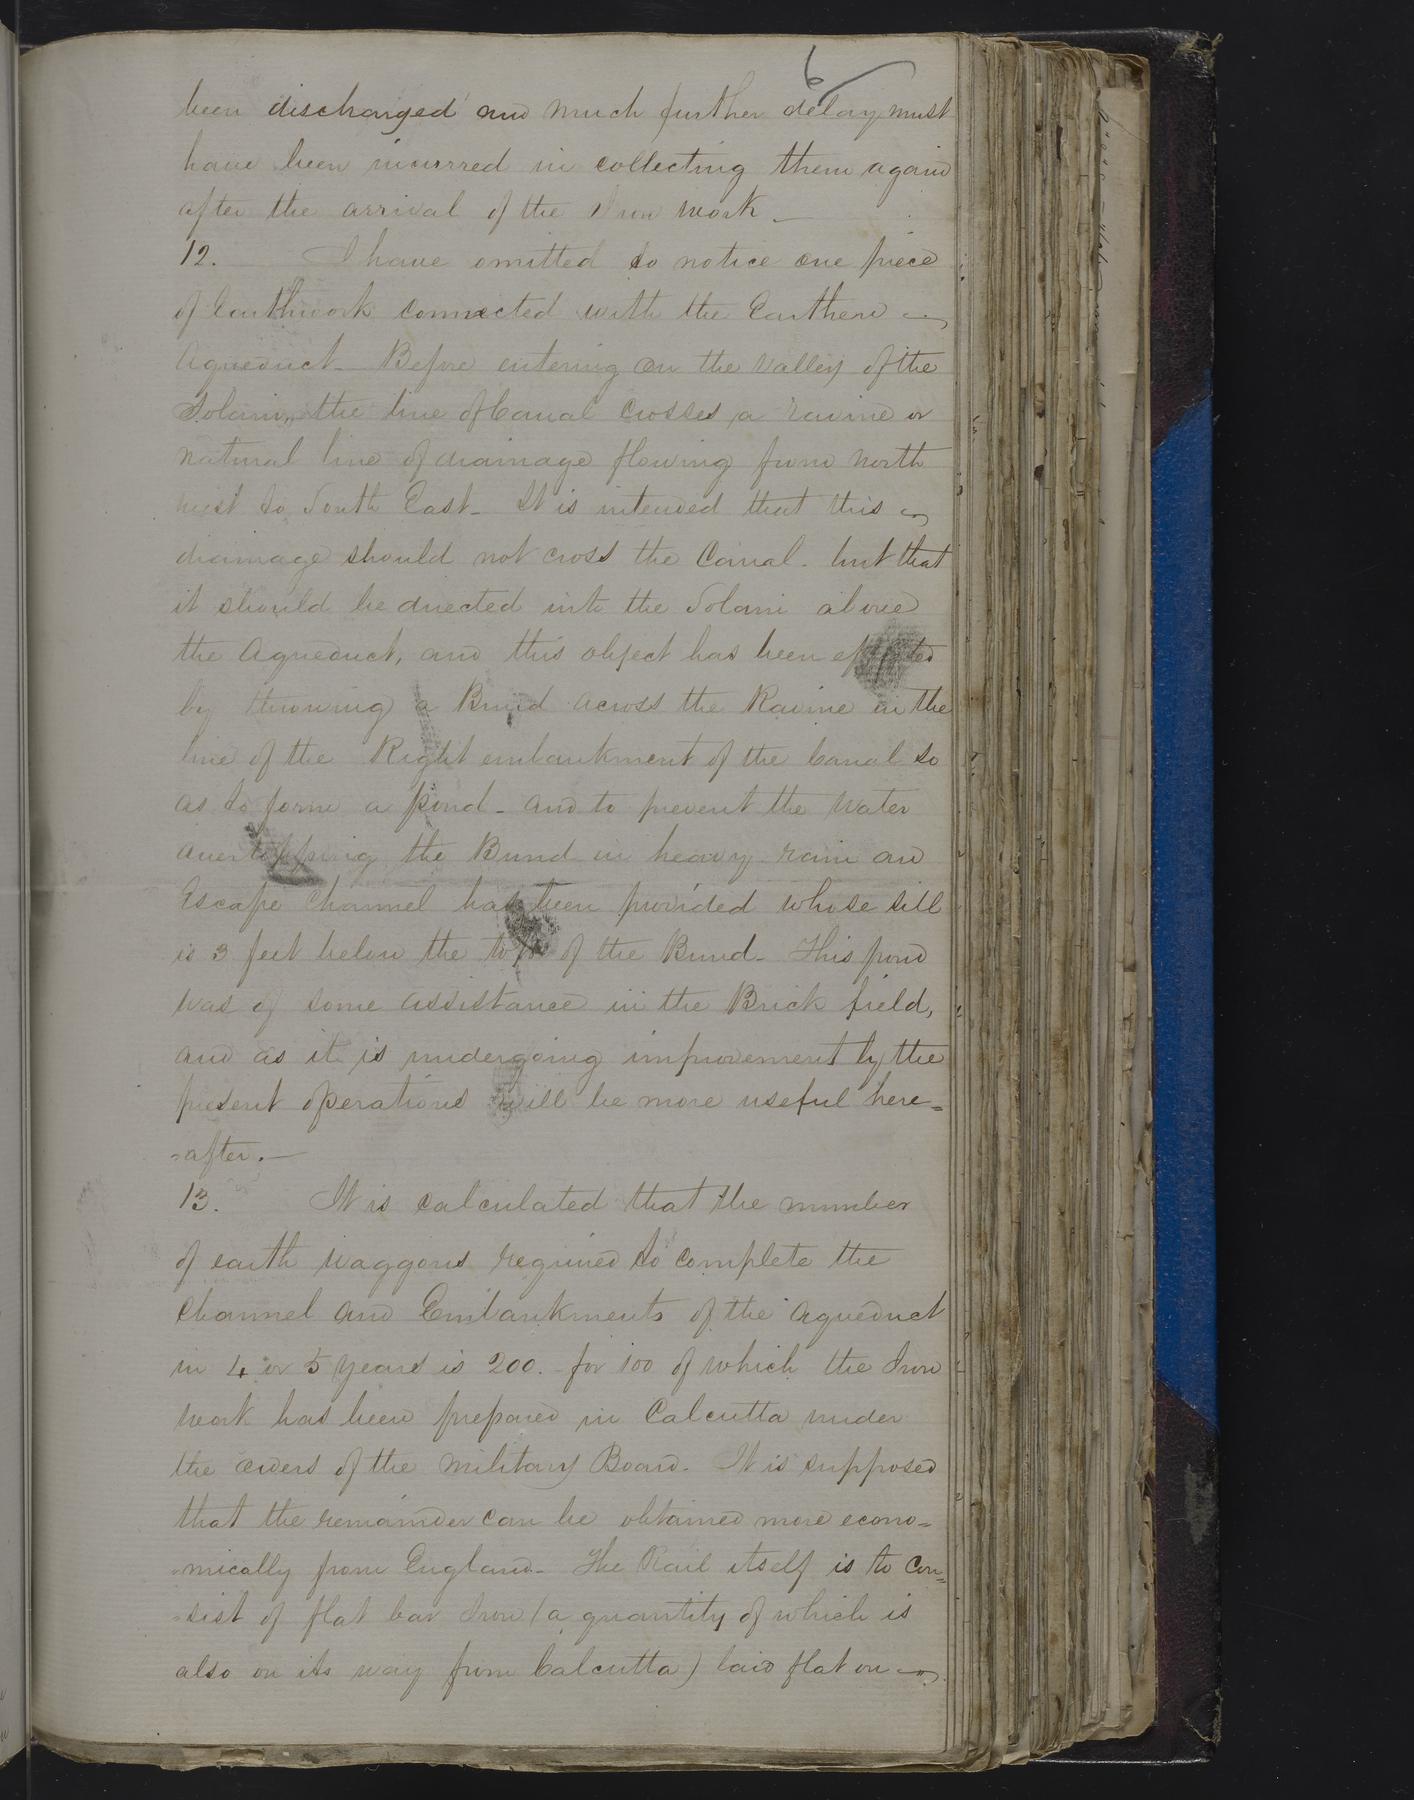 6
been discharged and much further delay must
have been incurred in collecting them again
after the arrival of the Iron work _
12. I have omitted to notice one piece
of Earthwork connected with the Earthern
Aqueduct_ Before entering on the valley of the
Solani, the line of Canal crosses a ravine or
natural line of drainage flowing from north
west to South East_ It is intended that this
drainage should not cross the Canal. but that
it should be directed into the Solani above
the Aqueduct, and this object has been effected
by throwing a Bund across the Ravine in the
line of the Right embankment of the Canal so
as to form a pond_ and to prevent the water
overtopping the Bund in heavy rain an
Escape Channel has been provided whose sill
is 3 feet below the top of the Bund_ This pond
was of some assistance in the Brick field,
and as it is undergoing improvement by the
present operations will be more useful here=
=after._
13. It is calculated that the number
of earth waggons required to complete the
Channel and Embankments of the aqueduct
in 4 or 5 years is 200. for 100 of which the Iron
work has been prepared in Calcutta under
the orders of the Military Board. It is supposed
that the remainder can be obtained more econo=
=mically from England_ The Rail itself is to con=
=sist of flat bar Iron (a quantity of which is
also on its way from Calcutta) laid flat on